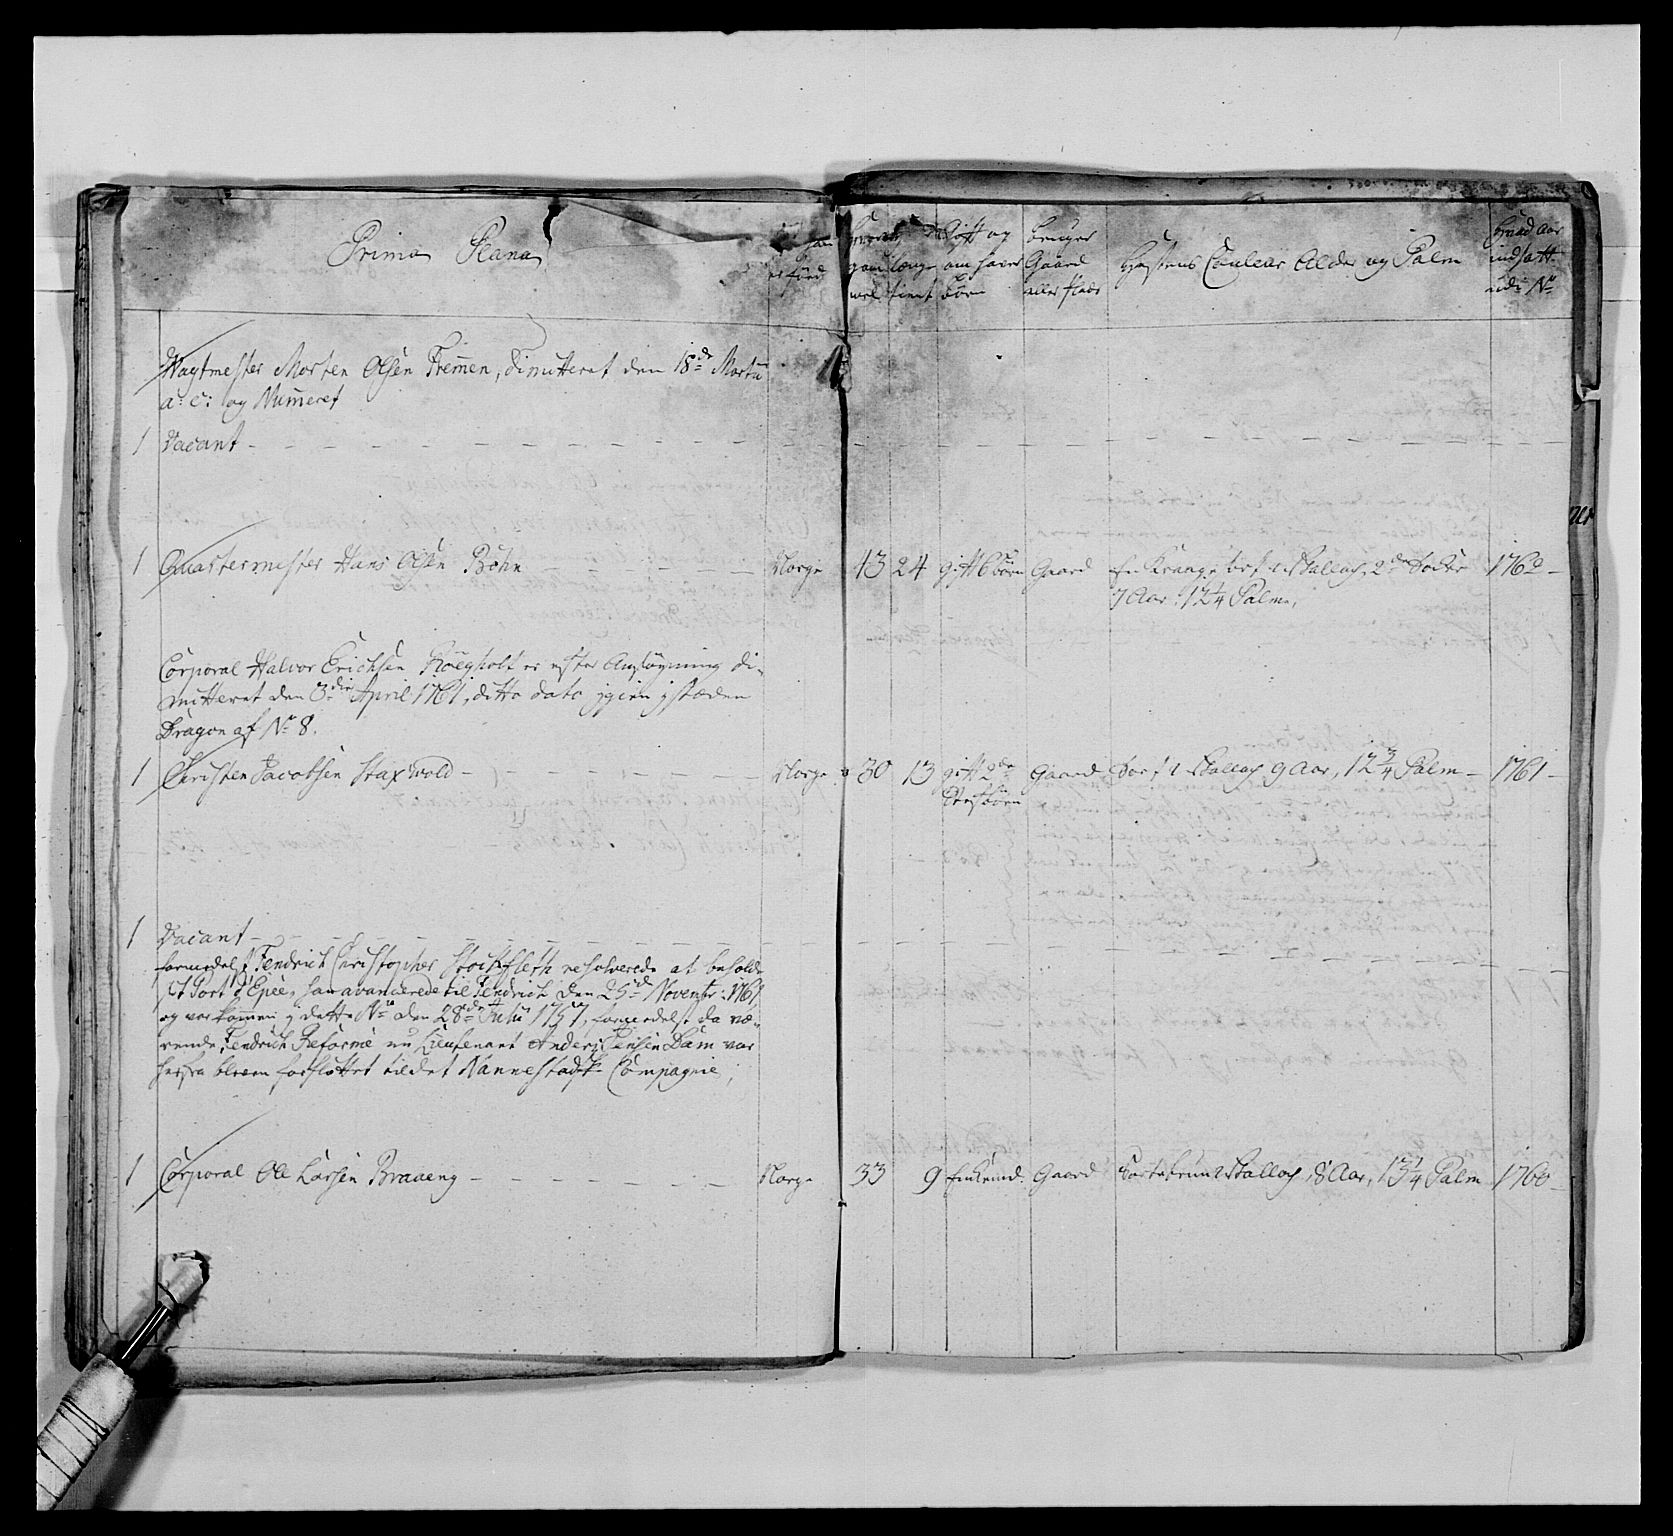 Prima Plana
er fød
Gift og
om haver
børn
bruger
Gaard
eller Plads
Hæstens Couleur Alder og Palm
hvad aar
indsatt
udi No
Wagtmester Morten Olsen Fremen, dimitteret den 18de Martii
a: c: og Numeret
1 Vacant
1 Quartermester Hans Olsen Böhn Norge 43 24 gift 6 börn Gaard 2de 1760
7 Aar, 12 1/4 Palm,
Corporal Halvor Erichsen er efter Ansøgning di-
mitteret den 3die April 1761, ditto dato igien i stæden
Dragon af No 8.
1 Christen Jacobsen Norge 30 13 gift 2de Gaard Wallach 9 Aar, 12 3/4 Palm 1761
börn
1 Vacant
formedelst Fendrich Christopher Stockfleth resolverede at beholde
sit Port d'Epee, han avancerede til Fendrich den 25de Novembr: 1761
og var kommen i dette No den 28de Julii 1757, formedelst da væ-
rende Fendrich Reformé nu Lieutenant Anders Jensen Dam var
herfra bleven forflöttet til det Nannestadsk Compagnie,
1 Corporal Ole Larsen Braaeng Norge 33 9 Enkemd. Gaard Sortebrun Wallach, 8 Aar, 13 1/4 Palm 1760